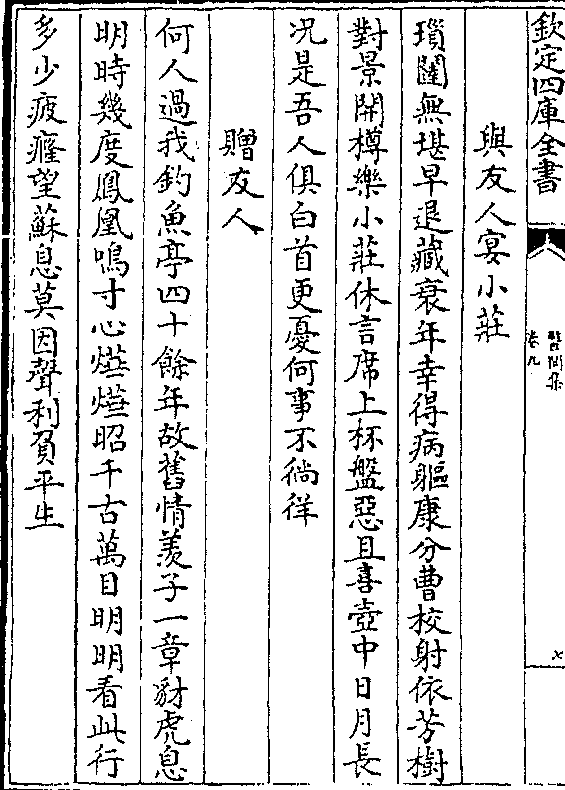 欽定四庫全書
醫閭集
卷九
七
與友人宴小莊
瑣闥無堪早退藏衰年幸得病軀康分曹校射依芳樹
對景開樽樂小莊休言席上杯盤惡且喜壺中日月長
况是吾人俱白首更憂何事不徜徉
贈友人
何人過我釣魚亭四十餘年故舊情羨子一章豺虎息
明時幾度鳳凰鳴寸心㷸㷸昭千古萬目明明看此行
多少疲癃望蘇息莫因聲利負平生